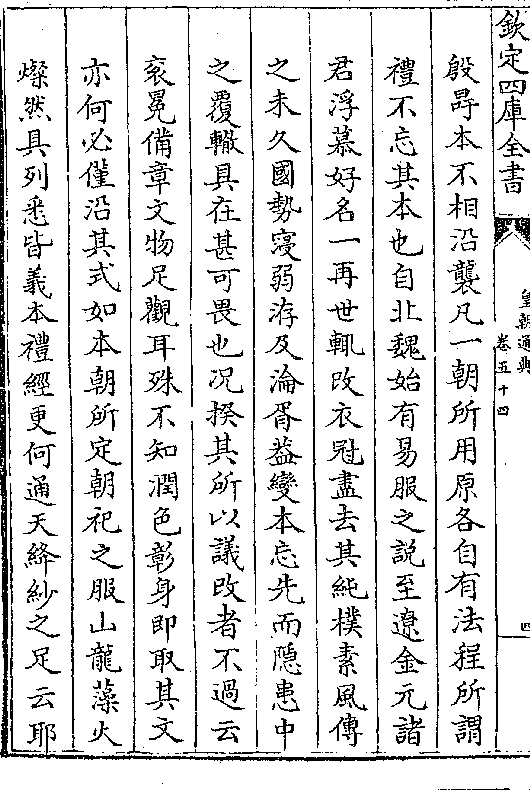 欽定四庫全書
皇朝通典
卷五十四
四
殷冔本不相沿襲凡一朝所用原各自有法程所謂
禮不忘其本也自北魏始有易服之説至遼金元諸
君浮慕好名一再世輒改衣冠盡去其純樸素風傳
之未久國勢寖弱洊及淪胥葢變本忘先而隠患中
之覆轍具在甚可畏也况揆其所以議改者不過云
衮冕備章文物足觀耳殊不知潤色彰身即取其文
亦何必僅沿其式如本朝所定朝祀之服山龍藻火
燦然具列悉皆義本禮經更何通天絳紗之足云耶